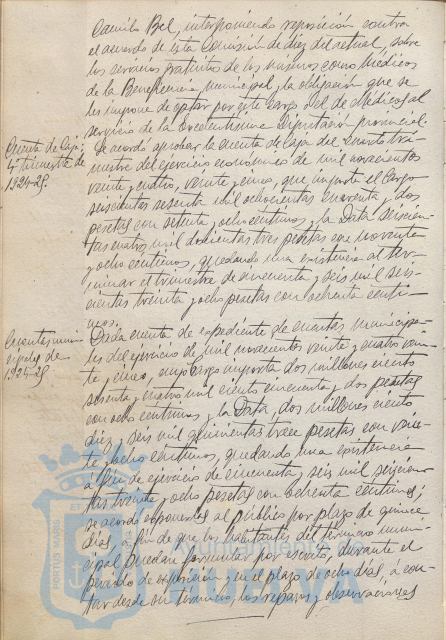 Camilo Bel, interponiendo reposición contra
el acuerdo de esta Comisión de diez del actual, sobre
los servicios gratuitos de los mismos como medicos
de la Beneficencia municipal y la obligación que se
les impone de optar por este cargo ó el de Médico al
servicio de la Excelentísima Diputación provincial.
Cuenta de Caja
4º trimestre de
1924-25.
Se acordó aprobar la cuenta de Caja del cuarto tri-
mestre del ejercicio economico de mil novecientos
veinte y cuatro, veinte y cinco, que importa el Cargo
seiscientas sesenta mil ochocientas cuarenta y dos
pesetas con setenta y ocho centimos, y la Data seiscien-
tas cuatro mil doscientas tres pesetas con noventa
y ocho centimos, quedando una existencia al ter-
minar el trimestre de cincuenta y seis mil seis-
cientas treinta y ocho pesetas con ochenta centi-
mos.
Cuentas muni-
cipales de
1924-25
Dada cuenta de expediente de cuentas municipa-
les del ejercicio de mil novecientos veinte y cuatro vein-
te y cinco, cuyo Cargo importa dos millones ciento
sesenta y cuatro mil ciento cincuenta y dos pesetas
con ocho centimos y la Data, dos millones ciento
diez y seis mil quinientas trece pesetas con vein-
te y ocho centimos, quedando una existencia
á fin de ejercicio de cincuenta y seis mil seiscien-
tas treinta y ocho pesetas con ochenta centimos;
se acordó exponerlas al público por plazo de quince
dias, á fin de que los habitantes del término muni-
cipal puedan formular por escrito, durante el
periodo de exposición y en el plazo de ocho dias, á con-
tar desde su término, los reparos y observaciones
PORTUS MAGNUS
Ayuntamiento